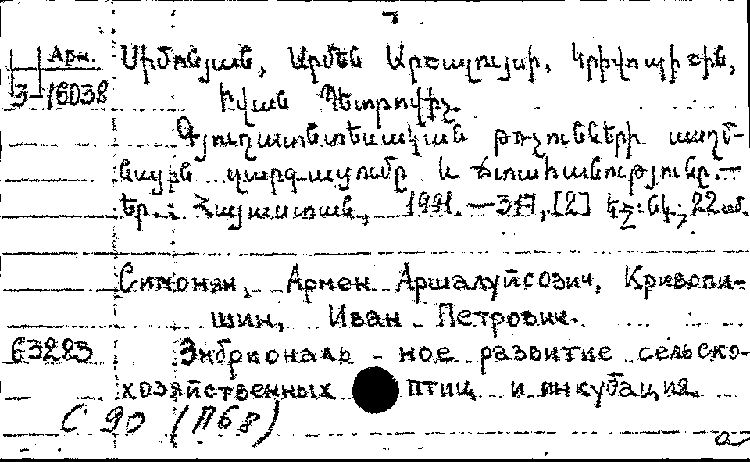 Арм. Սիմոնյան, Արմեն Արշալույսի, Կրիվոպիշին,
3-16038 Իվան Պետրովիչ.
Գյուղատնտեսական թռչունների սաղմ-
նային զարգացումը և ինկուբացիան.—
Եր.: Հայաստան, 1991.—317,[2] էջ: նկ.; 22 սմ.
Симонян, Армен Аршалуйсович, Кривопи-
шин, Иван Петрович.
63223 Эмбриональ - ное развитие сельско-
хозяйственных птиц и инкубация.
С 90 (П68)
а